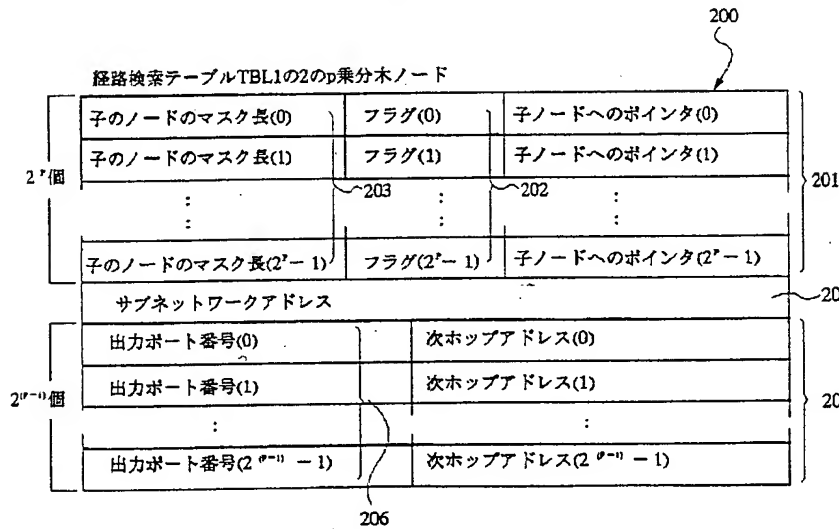 200
経路検索テーブルTBL1の2のp乗分木ノード
子のノードのマスク長(0) フラグ(0) 子ノードへのポインタ(0)
子のノードのマスク長(1) フラグ(1) 子ノードへのポインタ(1)
2^p個
203
202
201
: : :
: : :
子のノードのマスク長(2^p－1) フラグ(2^p－1) 子ノードへのポインタ(2^p－1)
サブネットワークアドレス
20
出力ポート番号(0) 次ホップアドレス(0)
出力ポート番号(1) 次ホップアドレス(1)
2^(p－1)個
20
: :
出力ポート番号(2^(p－1)－1) 次ホップアドレス(2^(p－1)－1)
206